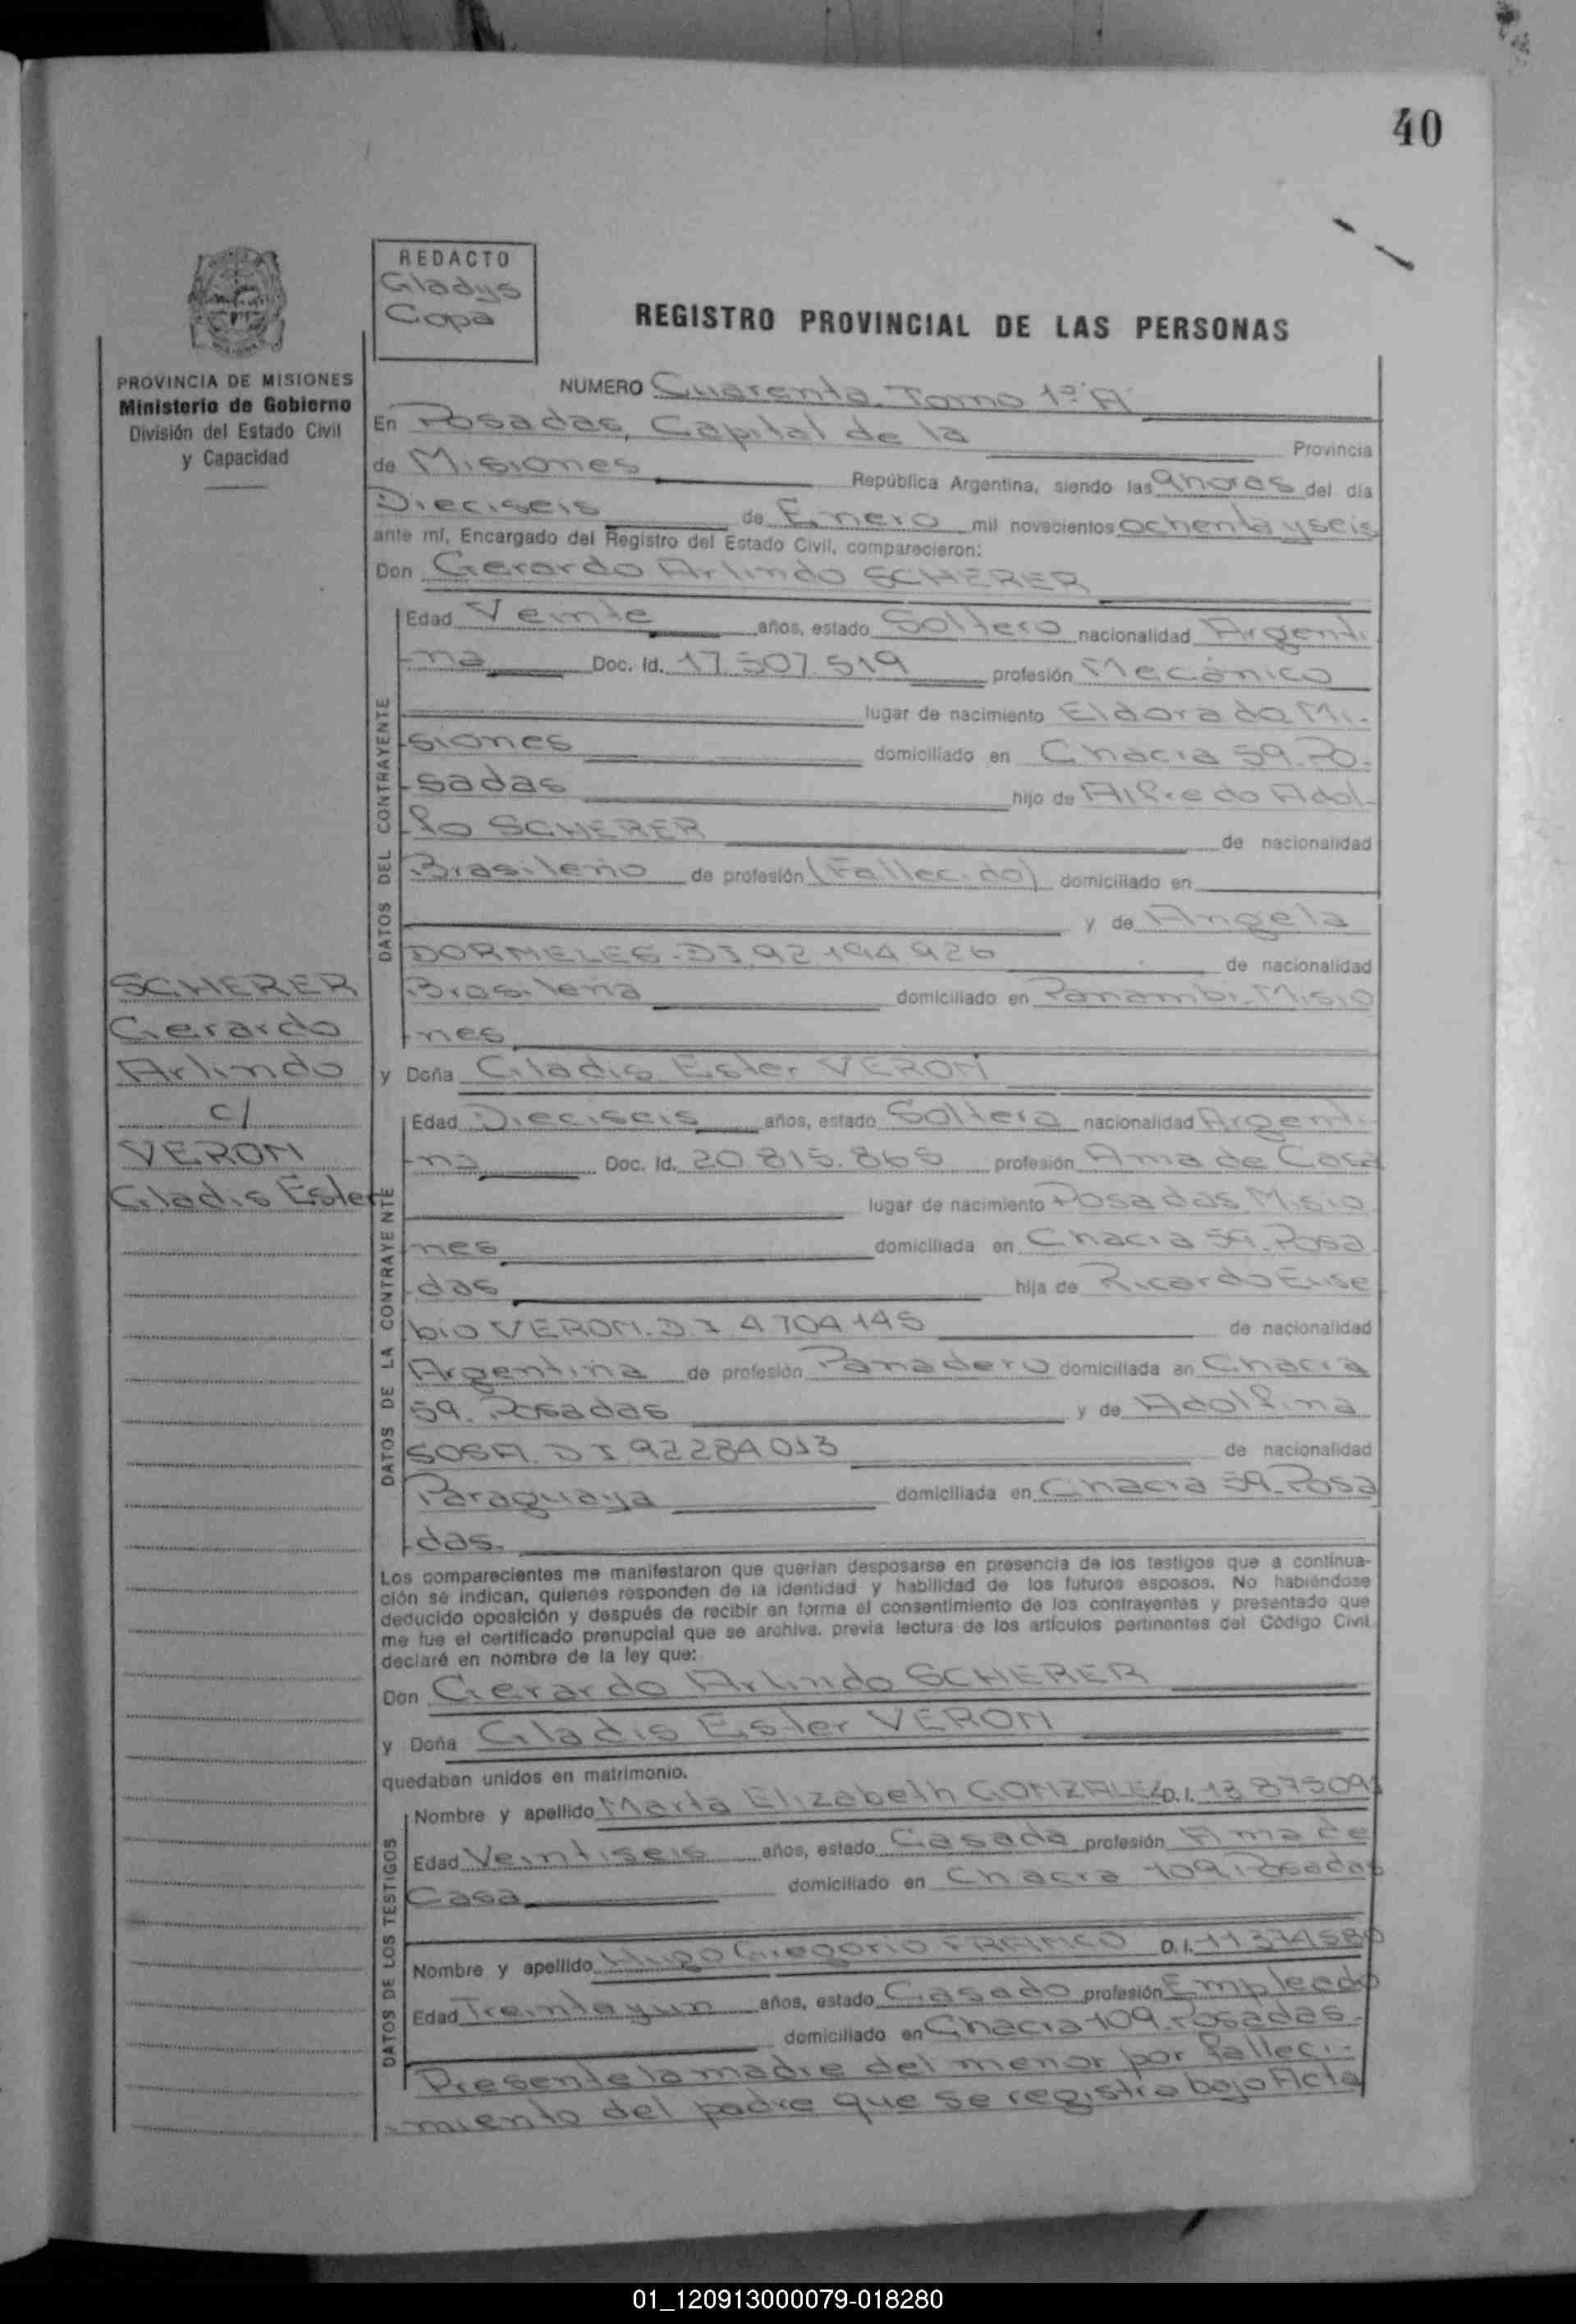 40
REDACTO
Gladys
Copa
REGISTRO PROVINCIAL DE LAS PERSONAS
PROVINCIA DE MISIONES
Ministerio de Gobierno
División del Estado Civil
y Capacidad
NUMERO Cuarenta. Tomo 1º "A"
En Posadas, Capital de la Provincia
de Misiones República Argentina, siendo las 9 horas del día
Dieciseis de Enero mil novecientos ochenta y seis
ante mí, Encargado del Registro del Estado Civil, comparecieron:
Don Gerardo Arlindo SCHERER
DATOS DEL CONTRAYENTE
Edad Veinte años, estado Soltero nacionalidad Argenti
na Doc. Id. 17.507.519 profesión Mecánico
lugar de nacimiento Eldorado Mi-
siones domiciliado en Chacra 59. Po-
sadas hijo de Alfredo Adol-
fo SCHERER de nacionalidad
Brasileño de profesión (Fallecido) domiciliado en
y de Angela
DORMELES. DI 92.194.926 de nacionalidad
Brasileña domiciliado en Panambi. Misio
nes
SCHERER
Gerardo
Arlindo
c/
VERON
Gladis Ester
y Doña Gladis Ester VERON
DATOS DE LA CONTRAYENTE
Edad Dieciseis años, estado Soltera nacionalidad Argenti
na Doc. Id. 20.815.865 profesión Ama de Casa
lugar de nacimiento Posadas. Misio
nes domiciliada en Chacra 59. Posa
das hija de Ricardo Euse
bio VERON. D I 4704145 de nacionalidad
Argentina de profesión Panadero domiciliada en Chacra
59. Posadas y de Adolfina
SOSA. D I 92284.013 de nacionalidad
Paraguaya domiciliada en Chacra 59. Posa
das.
Los comparecientes me manifestaron que querían desposarse en presencia de los testigos que a continua-
ción se indican, quienes responden de la identidad y habilidad de los futuros esposos. No habiéndose
deducido oposición y después de recibir en forma el consentimiento de los contrayentes y presentado que
me fue el certificado prenupcial que se archiva, previa lectura de los artículos pertinentes del Código Civil
declaré en nombre de la ley que:
Don Gerardo Arlindo SCHERER
y Doña Gladis Ester VERON
quedaban unidos en matrimonio.
DATOS DE LOS TESTIGOS
Nombre y apellido María Elizabeth GONZALEZ D.I. 13.875091
Edad Veintiseis años, estado Casada profesión Ama de
Casa domiciliado en Chacra 109. Posadas
Nombre y apellido Hugo Gregorio FRANCO D.I. 11374580
Edad Treinta y un años, estado Casado profesión Empleado
domiciliado en Chacra 109. Posadas.
Presente la madre del menor por falleci-
miento del padre que se registra bajo Acta
01_120913000079-018280